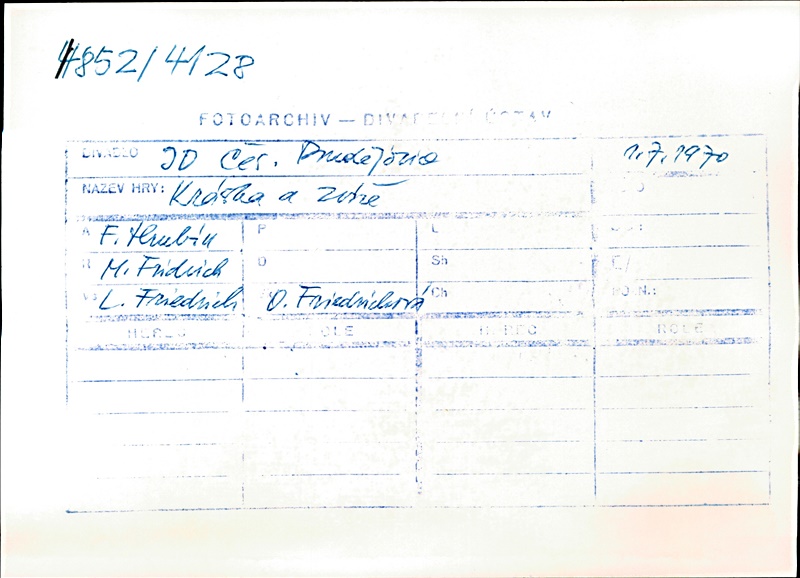 4852/4128
FOTOARCHIV — DIVADELNÍ ÚSTAV
DIVADLO JD Čes. Budějovice 1.7.1970
NÁZEV HRY: Kráska a zvíře
A F. Hrubín P L
R M. Fridrich O Sh
L. Friedrich O. Friedrichová Ch
HEREC ROLE HEREC ROLE